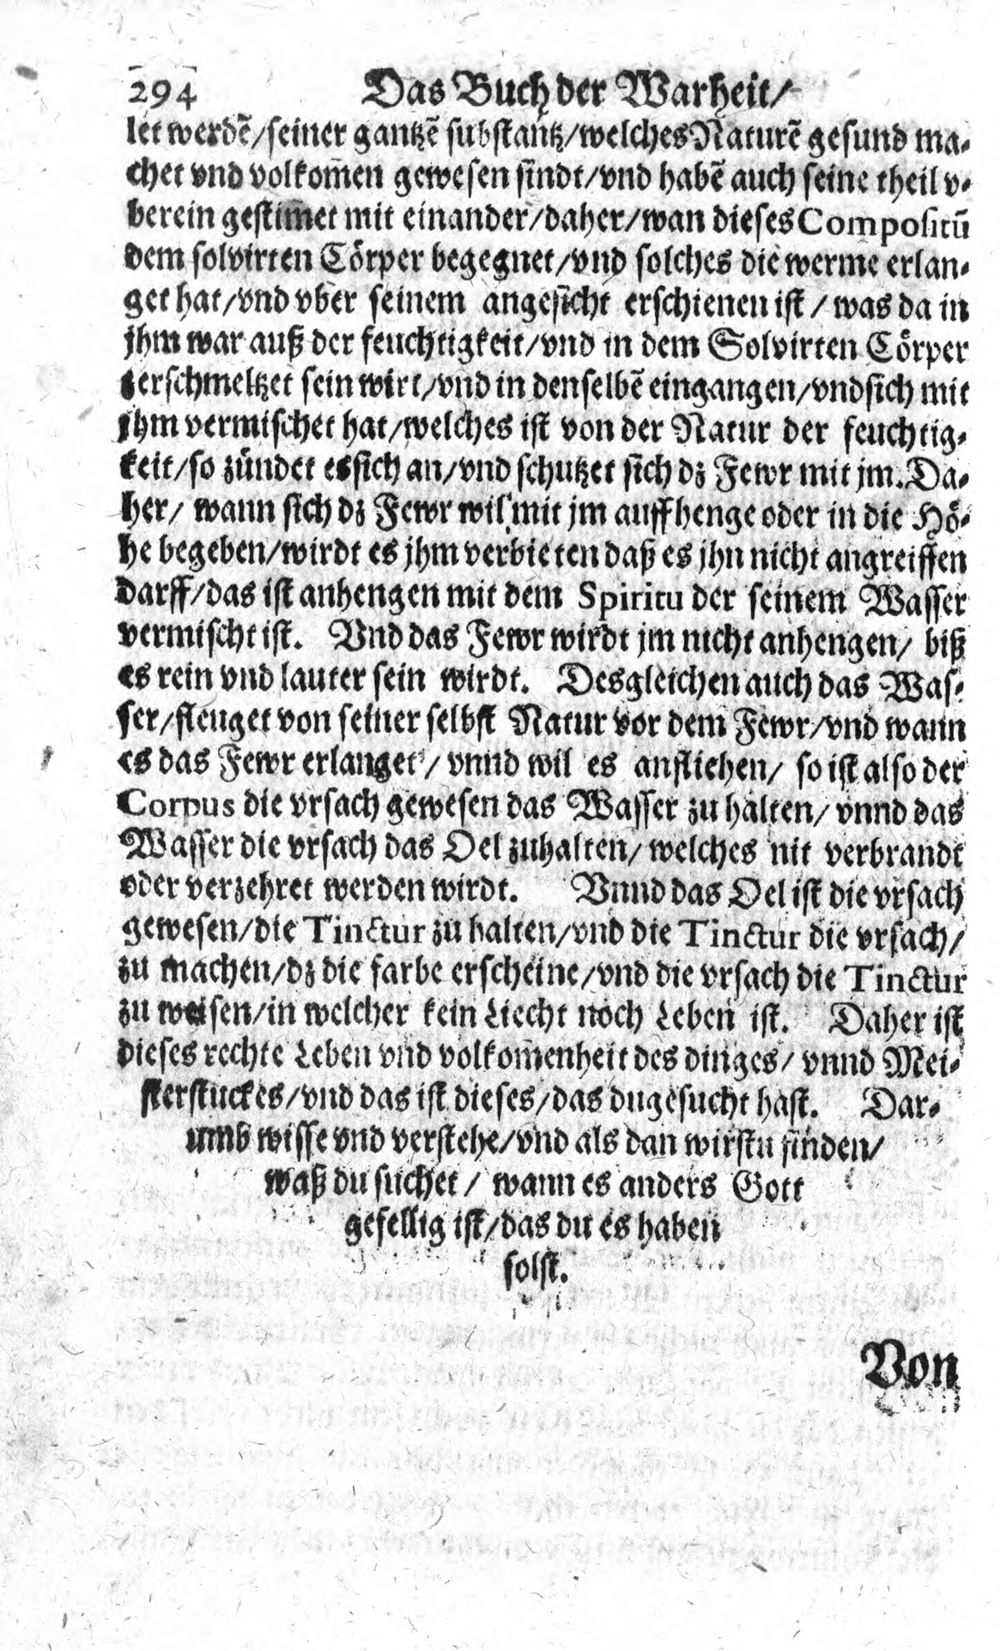 294 Das Buch der Warheit/
let werdē/seiner gantzē substantz/welches Naturē gesund ma-
chet vnd volkom̄en gewesen sindt/vnd habē auch seine theil v-
berein gestimet mit einander/daher/wan dieses Compositū
dem solvirten Cörper begegnet/vnd solches die werme erlan-
get hat/vnd vber seinem angesicht erschienen ist/was da in
jhm war auß der feuchtigkeit/vnd in dem Solvirten Cörper
zerschmeltzet sein wirt/vnd in denselbē eingangen/vnd sich mit
jhm vermischet hat/welches ist von der Natur der feuchtig-
keit/so zündet es sich an/vnd schutzet sich dz Fewr mit jm. Da-
her/ wann sich dz Fewr wil mit jm auffhenge oder in die Hö-
he begeben/wirdt es jhm verbieten daß es jhn nicht angreiffen
darff/das ist anhengen mit dem Spiritu der seinem Wasser
vermischt ist. Vnd das Fewr wirdt jm nicht anhengen/ biß
es rein vnd lauter sein wirdt. Desgleichen auch das Was-
ser/fleuget von seiner selbst Natur vor dem Fewr/vnd wann
es das Fewr erlanget/ vnnd wil es anfliehen/ so ist also der
Corpus die vrsach gewesen das Wasser zu halten/ vnnd das
Wasser die vrsach das Oel zuhalten/ welches nit verbrandt
oder verzehret werden wirdt. Vnnd das Oel ist die vrsach
gewesen/die Tinctur zu halten/vnd die Tinctur die vrsach/
zu machen/dz die farbe erscheine/vnd die vrsach die Tinctur
zu weisen/in welcher kein Liecht noch Leben ist. Daher ist
dieses rechte Leben vnd volkom̄enheit des dinges/ vnnd Mei-
sterstuckes/vnd das ist dieses/das du gesucht hast. Dar-
umb wisse vnd verstehe/vnd als dan wirstu finden/
waß du suchet/ wann es anders Gott
gefellig ist/das du es haben
solst.
Von